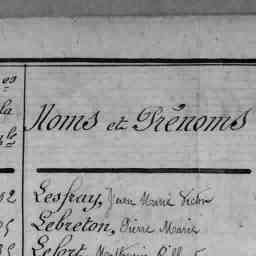 la
Noms et Prénoms
2 Lesfray, Jean Marie Victor
5 Lebreton, Pierre Marie
Lefort,